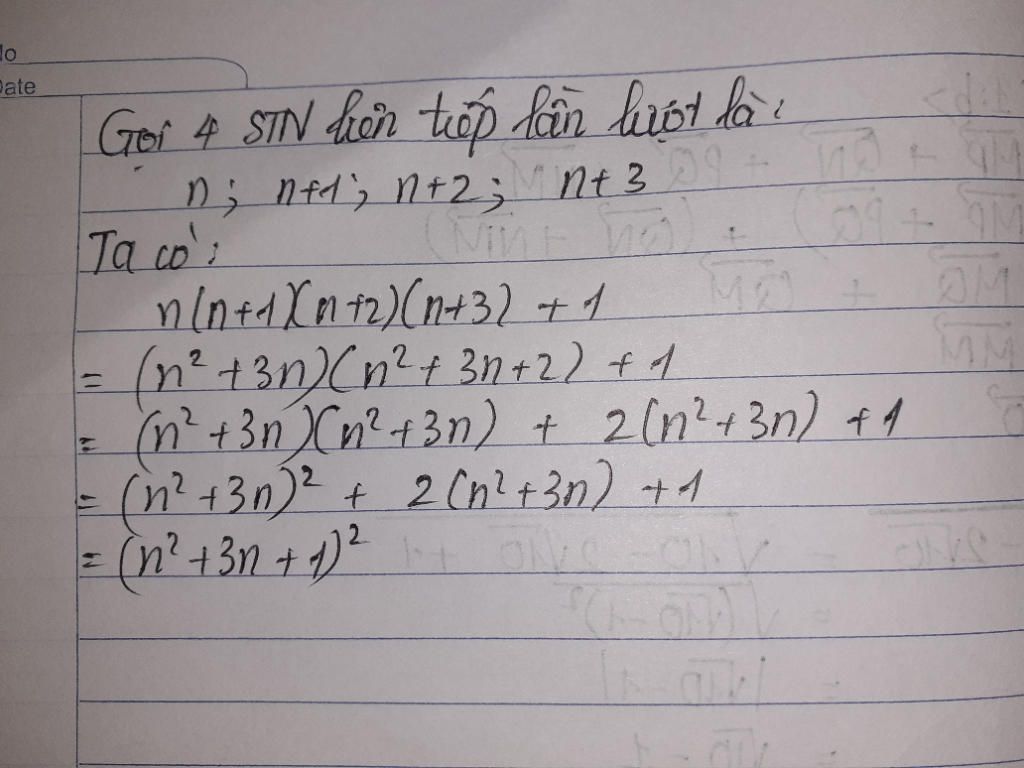 No
Date
Gọi 4 STN liên tiếp lần lượt là:
n; n+1; n+2; n+3
Ta có:
n(n+1)(n+2)(n+3) + 1
= (n² + 3n)(n² + 3n+2) + 1
= (n² + 3n)(n² + 3n) + 2(n² + 3n) + 1
= (n² + 3n)² + 2(n² + 3n) + 1
= (n² + 3n + 1)²